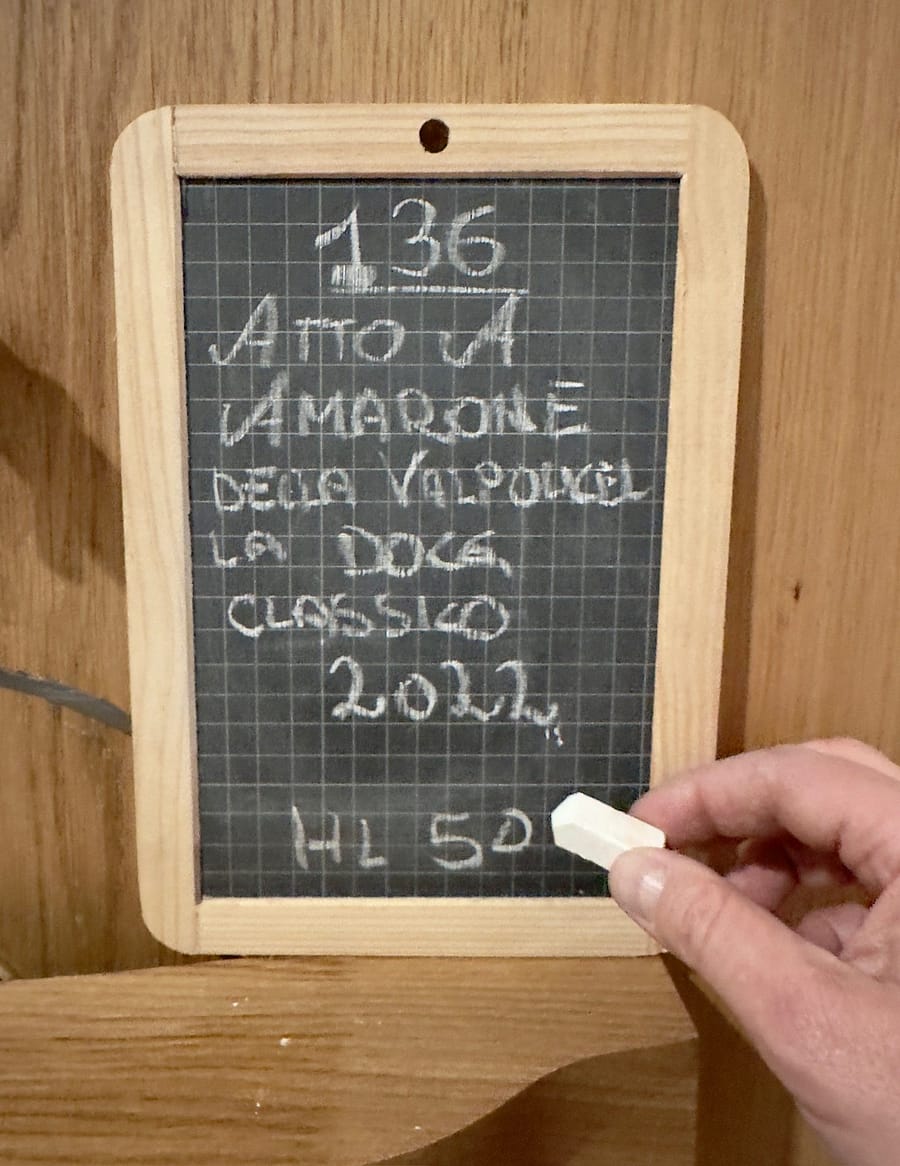 136
ATTO A
AMARONE
DELLA VALPOLICEL
LA DOCG
CLASSICO
2022
HL 50